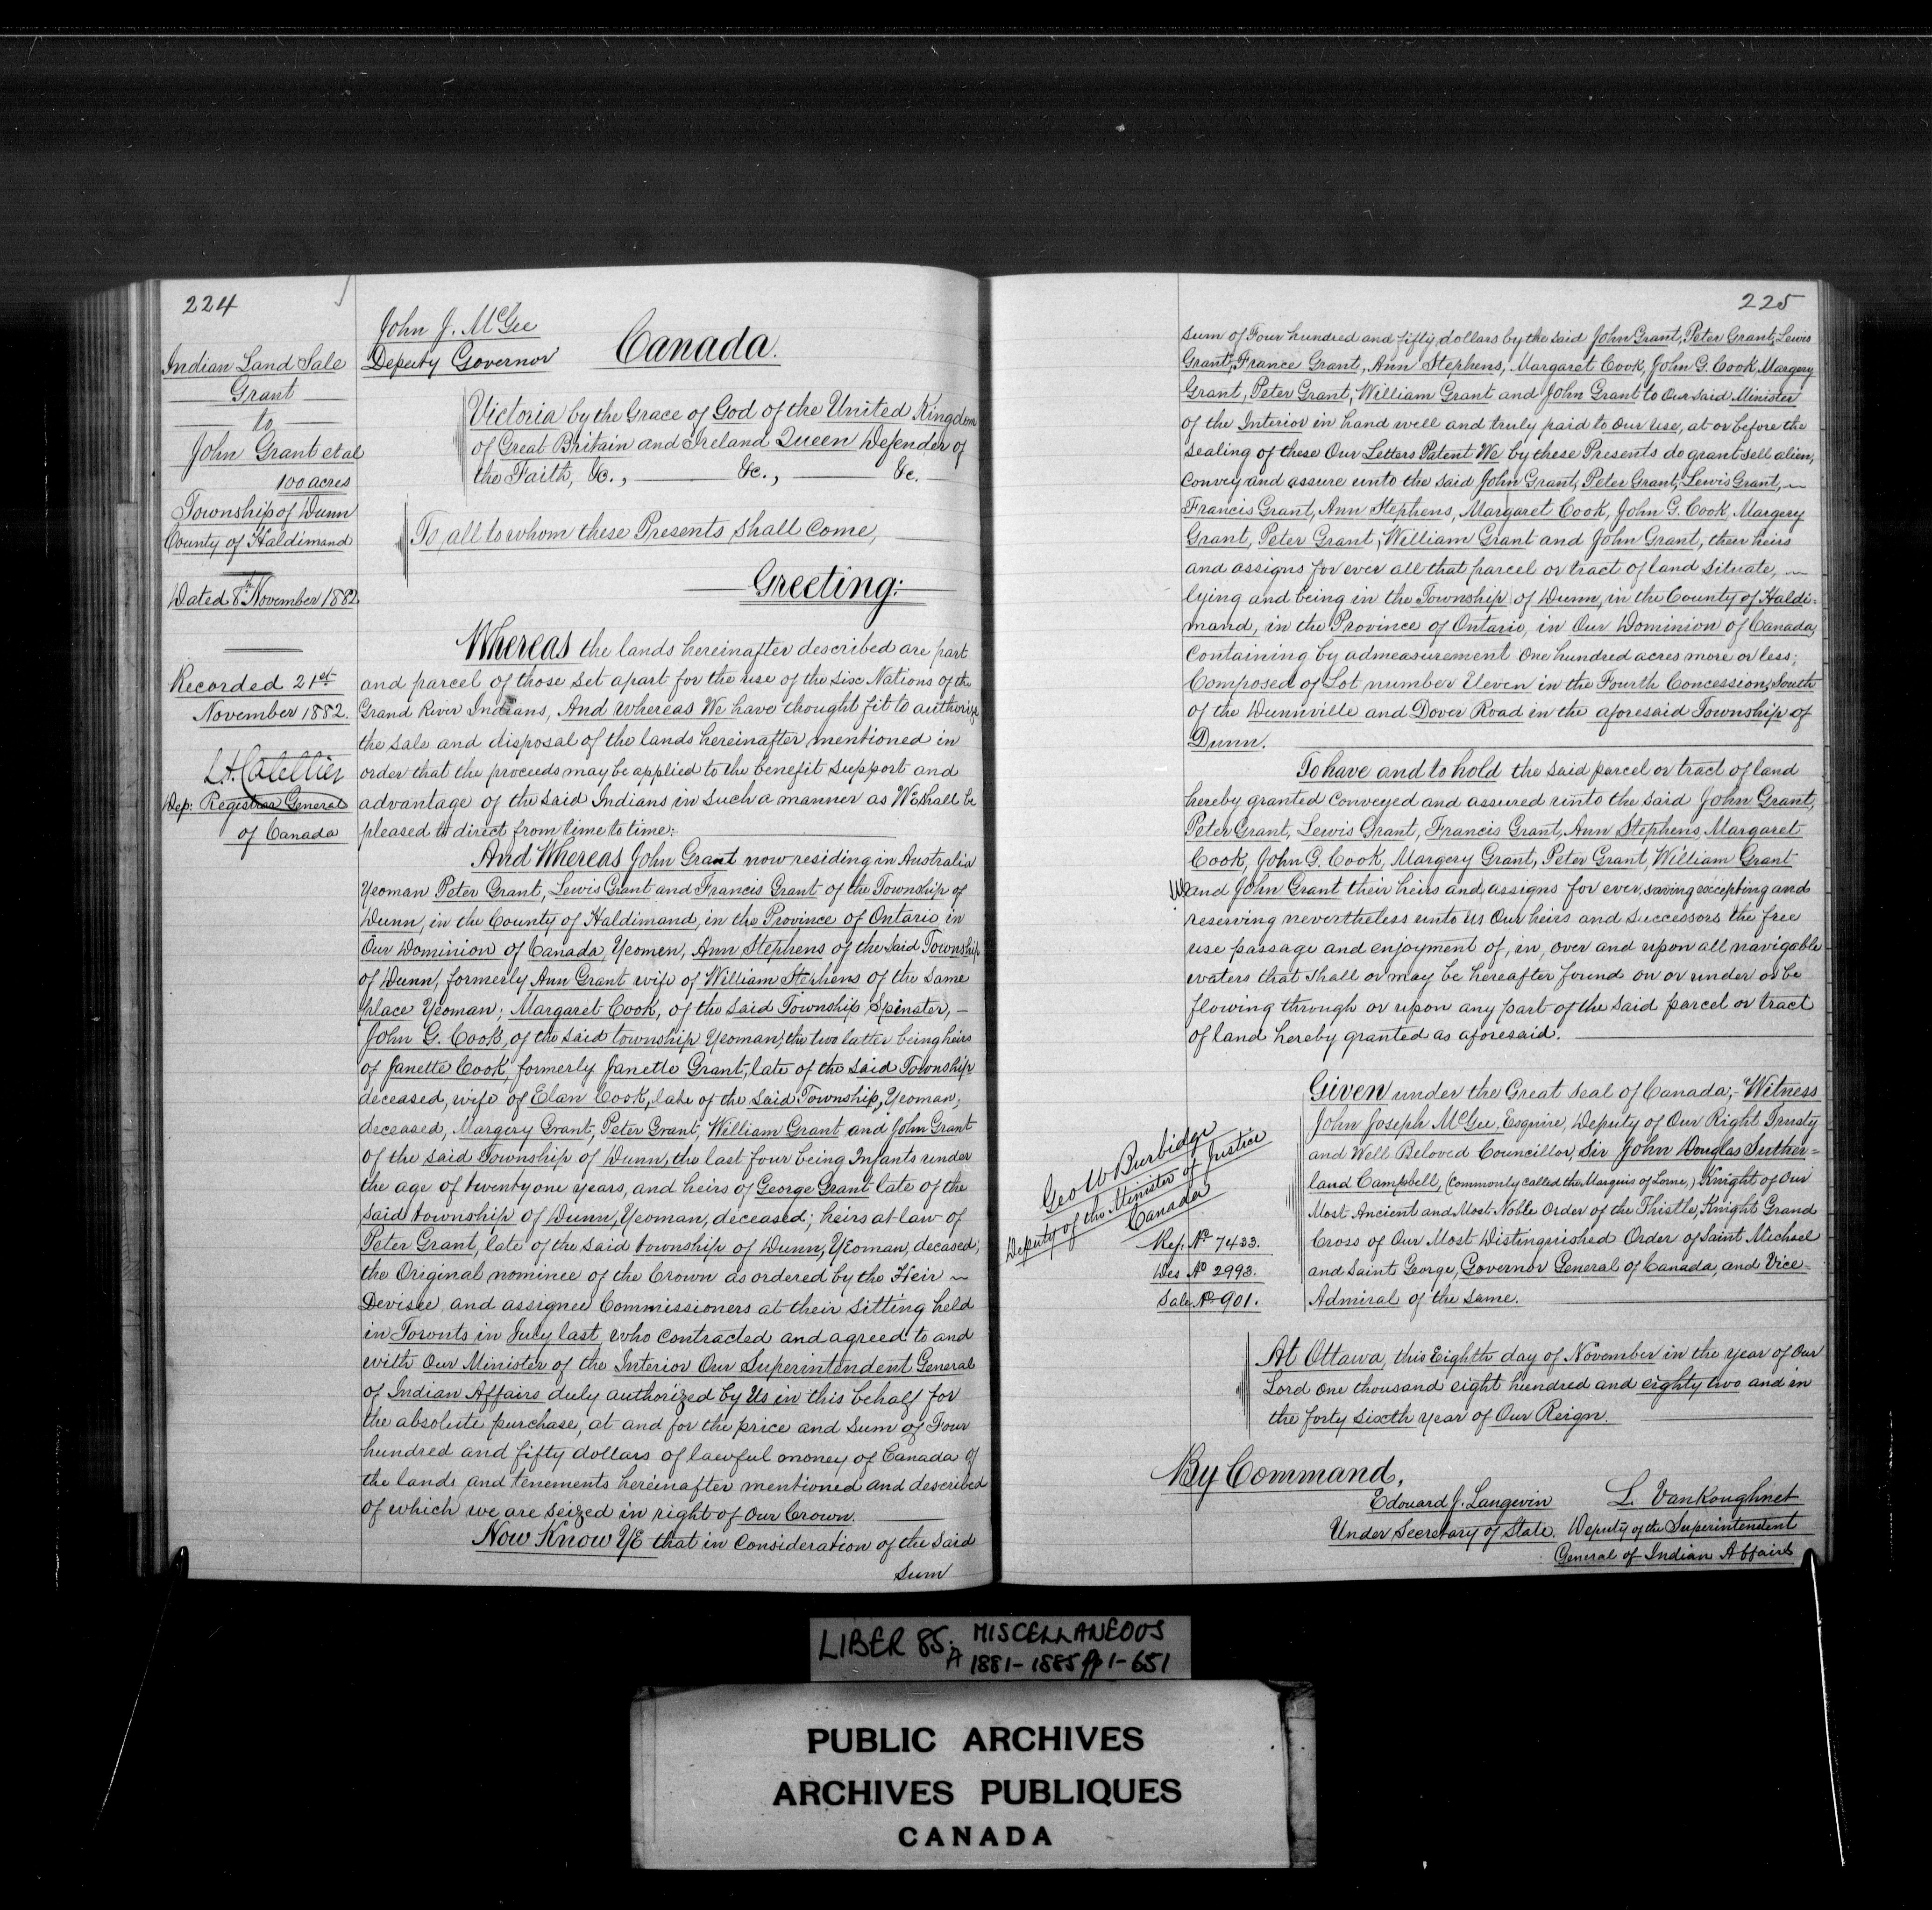 224
Indian Land Sale
Grant
to
John Grant et al
100 acres
Township of Dunn
County of Haldimand
Dated 8th November 1882
Recorded 21st
November 1882.
Dep: Registrar General
of Canada
John J. McGee
Deputy Governor
Canada.
Victoria by the Grace of God of the United Kingdom
of Great Britain and Ireland Queen Defender of
the Faith, &c., &c., &c.
To all to whom these Presents shall come,
Greeting:
Whereas the lands hereinafter described are part
and parcel of those set apart for the use of the Six Nations of the
Grand River Indians, And whereas We have thought fit to authorize
the sale and disposal of the lands hereinafter mentioned in
order that the proceeds may be applied to the benefit support and
advantage of the said Indians in such a manner as We shall be
pleased to direct from time to time:
And Whereas John Grant now residing in Australia
Yeoman Peter Grant, Lewis Grant and Francis Grant of the Township of
Dunn, in the County of Haldimand, in the Province of Ontario in
Our Dominion of Canada, Yeomen, Ann Stephens of the said Township
of Dunn, formerly Ann Grant wife of William Stephens of the same
place Yeoman; Margaret Cook, of the said Township Spinster, —
John G. Cook, of the said township Yeoman, the two latter being heirs
of Janette Cook, formerly Janette Grant, late of the said Township
deceased, wife of Elan Cook, late of the said Township, Yeoman,
deceased, Margery Grant, Peter Grant, William Grant and John Grant
of the said Township of Dunn, the last four being Infants under
the age of twenty one years, and heirs of George Grant late of the
said township of Dunn, Yeoman, deceased; heirs at law of
Peter Grant, late of the said township of Dunn, Yeoman, decased,
the Original nominee of the Crown as ordered by the Heir ~
Devisee and assignee Commissioners at their sitting held
in Toronto in July last, who contracted and agreed to and
with Our Minister of the Interior Our Superintendent General
of Indian Affairs duly authorized by Us in this behalf for
the absolute purchase, at and for the price and sum of Four
hundred and fifty dollars of lawful money of Canada of
the lands and tenements hereinafter mentioned and described
of which we are seized in right of Our Crown.
Now Know Ye that in Consideration of the said
sum
225
sum of Four hundred and fifty dollars by the said John Grant, Peter Grant, Lewis
Grant, France Grant, Ann Stephens, Margaret Cook, John G. Cook, Margery
Grant, Peter Grant, William Grant and John Grant to Our said Minister
of the Interior in hand well and truly paid to Our use, at or before the
sealing of these Our Letters Patent We by these Presents do grant sell alien,
convey and assure unto the said John Grant, Peter Grant, Lewis Grant, ~
Francis Grant, Ann Stephens, Margaret Cook, John G. Cook, Margery
Grant, Peter Grant, William Grant and John Grant, their heirs
and assigns for ever all that parcel or tract of land situate, ~
lying and being in the Township of Dunn, in the County of Haldi=
mand, in the Province of Ontario, in Our Dominion of Canada,
Containing by admeasurement One hundred acres more or less;
Composed of Lot number Eleven in the Fourth Concession, South
of the Dunnville and Dover Road in the aforesaid Township of
Dunn.
To have and to hold the said parcel or tract of land
hereby granted conveyed and assured unto the said John Grant,
Peter Grant, Lewis Grant, Francis Grant, Ann Stephens, Margaret
Cook, John G. Cook, Margery Grant, Peter Grant, William Grant
and John Grant their heirs and assigns for ever, saving excepting and
reserving nevertheless unto us Our heirs and successors the free
use passage and enjoyment of, in, over and upon all navigable
waters that shall or may be hereafter found on or under or be
flowing through or upon any part of the said parcel or tract
of land hereby granted as aforesaid.
Given under the Great Seal of Canada;- Witness
John Joseph McGee, Esquire, Deputy of Our Right Trusty
and Well Beloved Councillor, Sir John Douglas Suther=
land Campbell, (Commonly called the Marquis of Lorne,) Knight of Our
Most Ancient and Most Noble Order of the Thistle, Knight Grand
Cross of Our Most Distinguished Order of Saint Michael
and Saint George, Governor General of Canada, and Vice-
Admiral of the Same.
Geo W Burbidge
Deputy of the Minister of Justice
Canada
Ref. No 7433.
Des No 2993.
Sale No 901.
At Ottawa, this Eighth day of November in the year of Our
Lord one thousand eight hundred and eighty two and in
the forty sixth year of Our Reign.
By Command,
Edouard J. Langevin
Under Secretary of State.
L. VanKoughnet
Deputy of the Superintendent
General of Indian Affairs
LIBER 85; MISCELLANEOUS
A 1881-1885 pp 1-651
PUBLIC ARCHIVES
ARCHIVES PUBLIQUES
CANADA